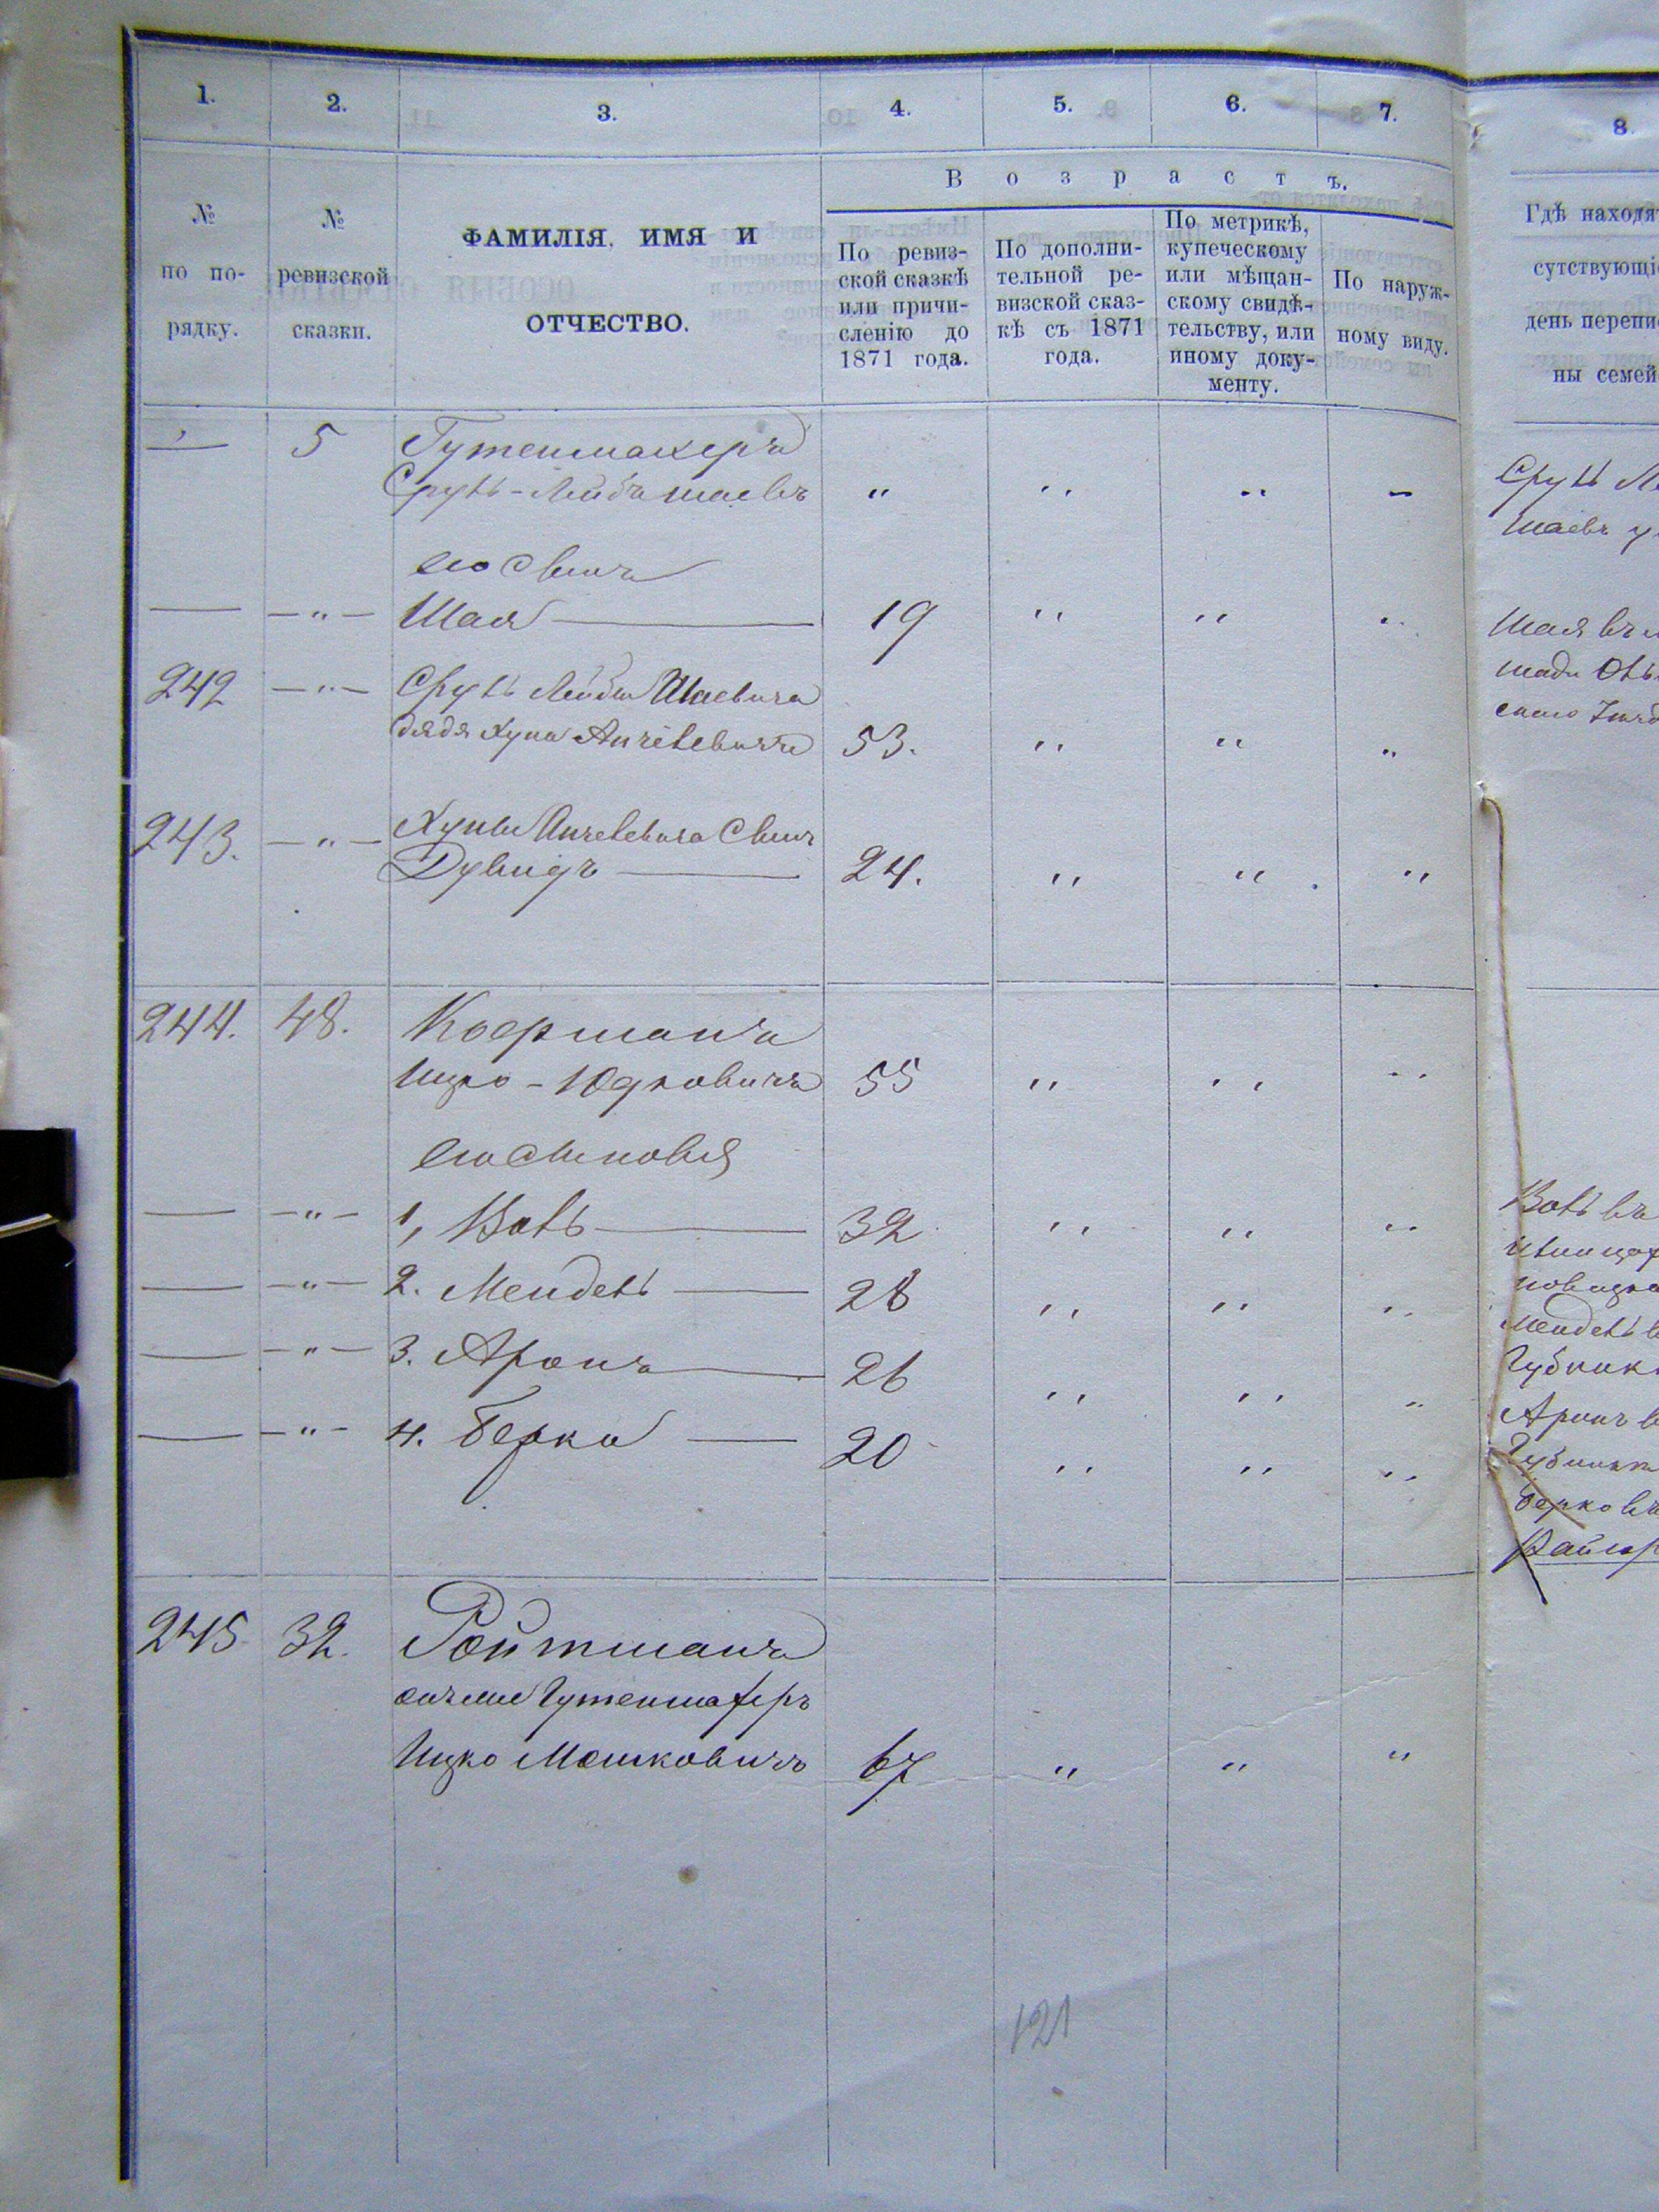 1. 2. 3. 4. 5. 6. 7. 8.
В о з р а с т ъ.
№ по по-рядку.
№ ревизской сказки.
ФАМИЛІЯ, ИМЯ И
ОТЧЕСТВО.
По ревиз-
ской сказкѣ
или причи-
сленію до
1871 года.
По дополни-
тельной ре-
визской сказ-
кѣ съ 1871
года.
По метрикѣ,
купеческому
или мѣщан-
скому свидѣ-
тельству, или
иному доку-
менту.
По наруж-
ному виду.
Гдѣ находят
сутствующіе
день перепис
ны семей
— 5 Гутенмахеръ
Сруль-Лейбъ Шаевъ " " " "
Сруль Ле
Шаевъ
его сынъ
— —"— Шая — 19 " " "
Шая въ
242 —"— Сруль Лейбы Шаевича
дядя Хуна Анчелевичъ 53. " " "
243. —"— Хуны Анчелевича сынъ
Дувидъ — 24. " " "
244. 48. Коерманъ
Ицко-Юдковичъ 55 " " "
его сыновья
— —"— 1, Волъ — 32 " " "
— —"— 2. Мендель — 28 " " "
— —"— 3. Аронъ — 26 " " "
— —"— 4. Берко — 20 " " "
Мендель в
Аронъ в
Берко въ
245 32. Ройтманъ
онъ же Гутенмахеръ
Ицко Мошковичъ 67 " " "
121